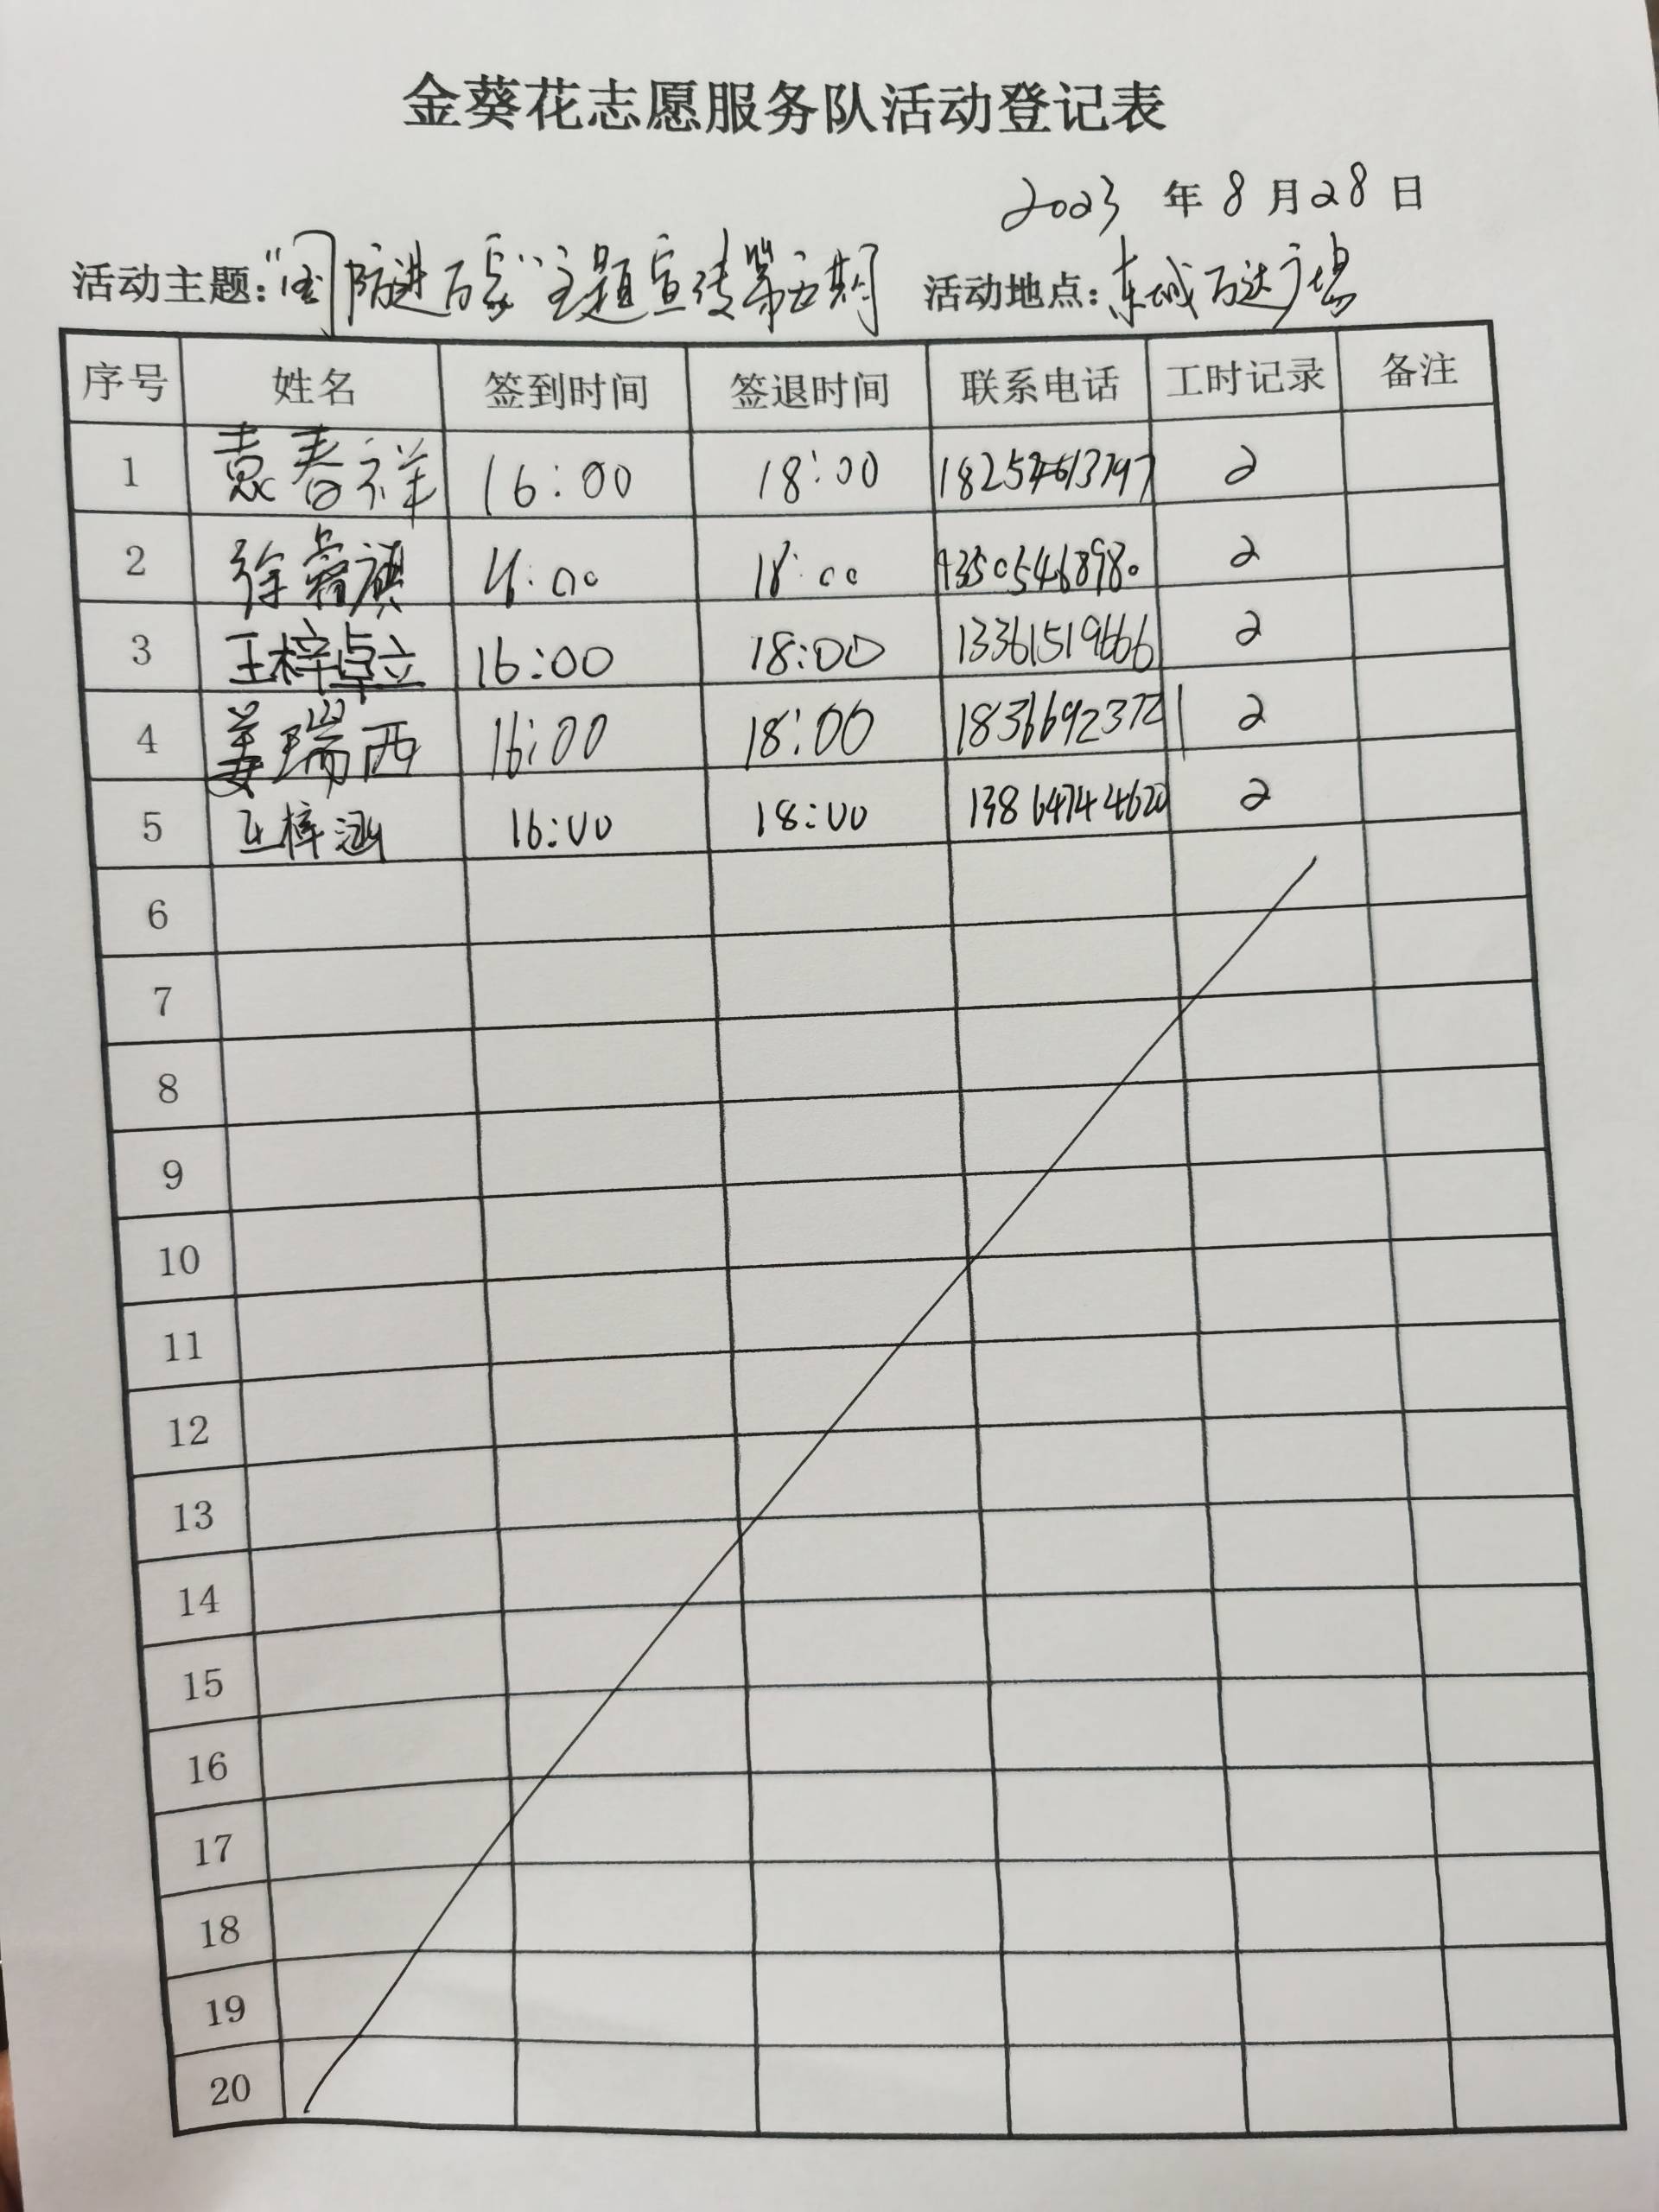 金葵花志愿服务队活动登记表
2023 年 8 月 28 日
活动主题:“国防进万家”主题宣传第五期 活动地点:东城万达广场
序号 姓名 签到时间 签退时间 联系电话 工时记录 备注
1 袁春祥 16:00 18:00 2
2 徐睿祺 18:00 13505468980 2
3 王梓卓立 16:00 18:00 13361519666 2
4 姜瑞西 16:00 18:00 18366923721 2
5 王梓涵 16:00 18:00 13864744620 2
6
7
8
9
10
11
12
13
14
15
16
17
18
19
20